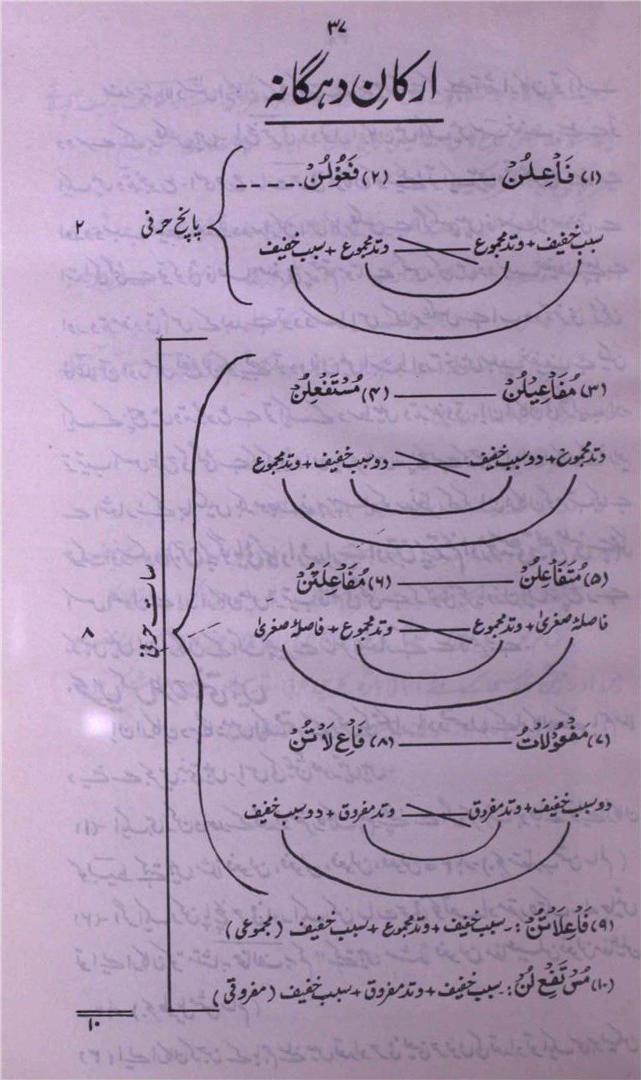 ۳۷
ارکانِ دہگانہ
(۱) فَاْعِلُنْ ——— (۲) فَعُوْلُنْ -----
پانچ حرفی ۲
سبب خفیف + وتد مجموع ——— وتد مجموع + سبب خفیف
(۳) مَفَاْعِیْلُنْ ——— (۴) مُسْتَفْعِلُنْ
وتد مجموع + دو سبب خفیف ——— دو سبب خفیف + وتد مجموع
(۵) مُتَفَاْعِلُنْ ——— (۶) مُفَاْعِلَتُنْ
سات حرفی ۸
فاصلۂ صغریٰ + وتد مجموع ——— وتد مجموع + فاصلۂ صغریٰ
(۷) مَفْعُوْلَاْتُ ——— (۸) فَاْعِ لَاْتُنْ
دو سبب خفیف + وتد مفروق ——— وتد مفروق + دو سبب خفیف
(۹) فَاْعِلَاْتُنْ :۔ سبب خفیف + وتد مجموع + سبب خفیف (مجموعی)
(۱۰) مُسْ تَفْعِ لُنْ :۔ سبب خفیف + وتد مفروق + سبب خفیف (مفروقی)
۱۰